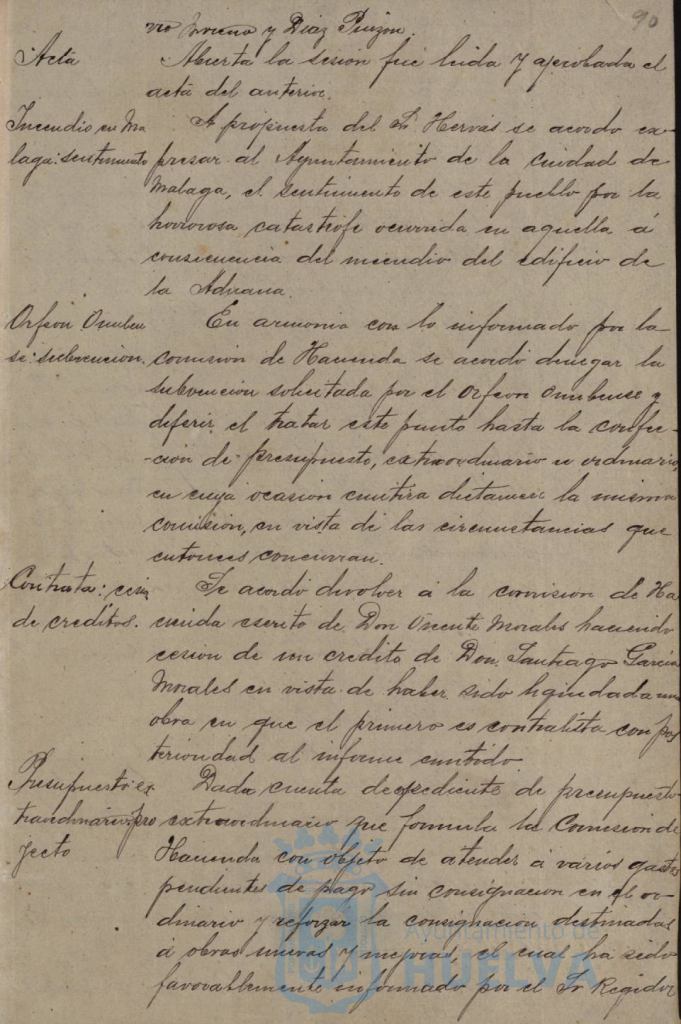 90
vio Moreno y Diaz Pinzon.
Acta
Abierta la sesión fué leida y aprobada el
acta del anterior.
Incendio en Ma
laga: sentimiento
A propuesta del Sr. Hervás se acordo ex-
presar al Ayuntamiento de la ciudad de
Malaga, el sentimiento de este pueblo por la
horrorosa catastrofe ocurrida en aquella á
consecuencia del incendio del edificio de
la Aduana.
Orfeon Onuben
se: subvencion.
En armonia con lo informado por la
comision de Hacienda se acordó denegar la
subvencion solicitada por el Orfeon Onubense y
diferir el tratar este punto hasta la confec-
-cion de presupuesto, extraordinario u ordinario,
en cuya ocasion emitira dictamen la misma
comision, en vista de las circunstancias que
entonces concurran.
Contrata: cesion
de creditos.
Se acordó devolver á la comision de Ha
cienda escrito de Don Vicente Morales haciendo
cesion de un credito de Don Santiago Garcia
Morales en vista de haber sido liquidada una
obra en que el primero es contratista con pos
terioridad al informe emitido.
Presupuesto ex
traordinario: pro
yecto
Dada cuenta de expediente de presupuesto
extraordinario que formula la Comision de
Hacienda con objeto de atender á varios gastos
pendientes de pago sin consignacion en el or-
dinario y reforzar la consignacion destinada
á obras nuevas y mejoras, el cual ha sido
favorablemente informado por el Sr Regidor
Ayuntamiento de
HUELVA